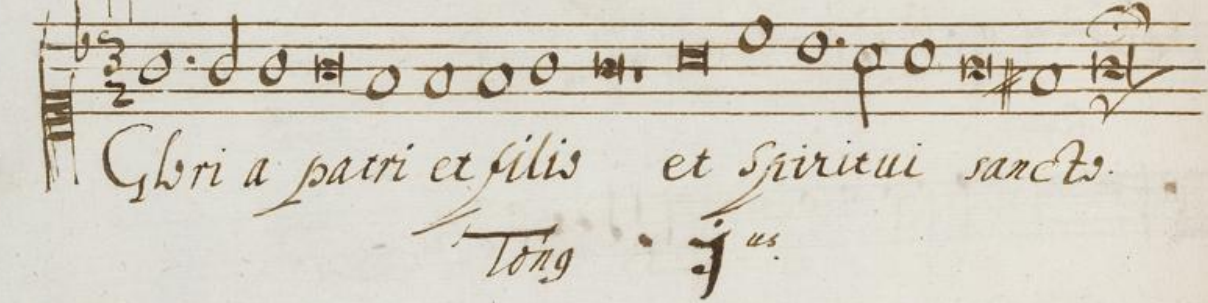 3
2
Glori a patri et filio et Spiritui sancto.
Tong j us.